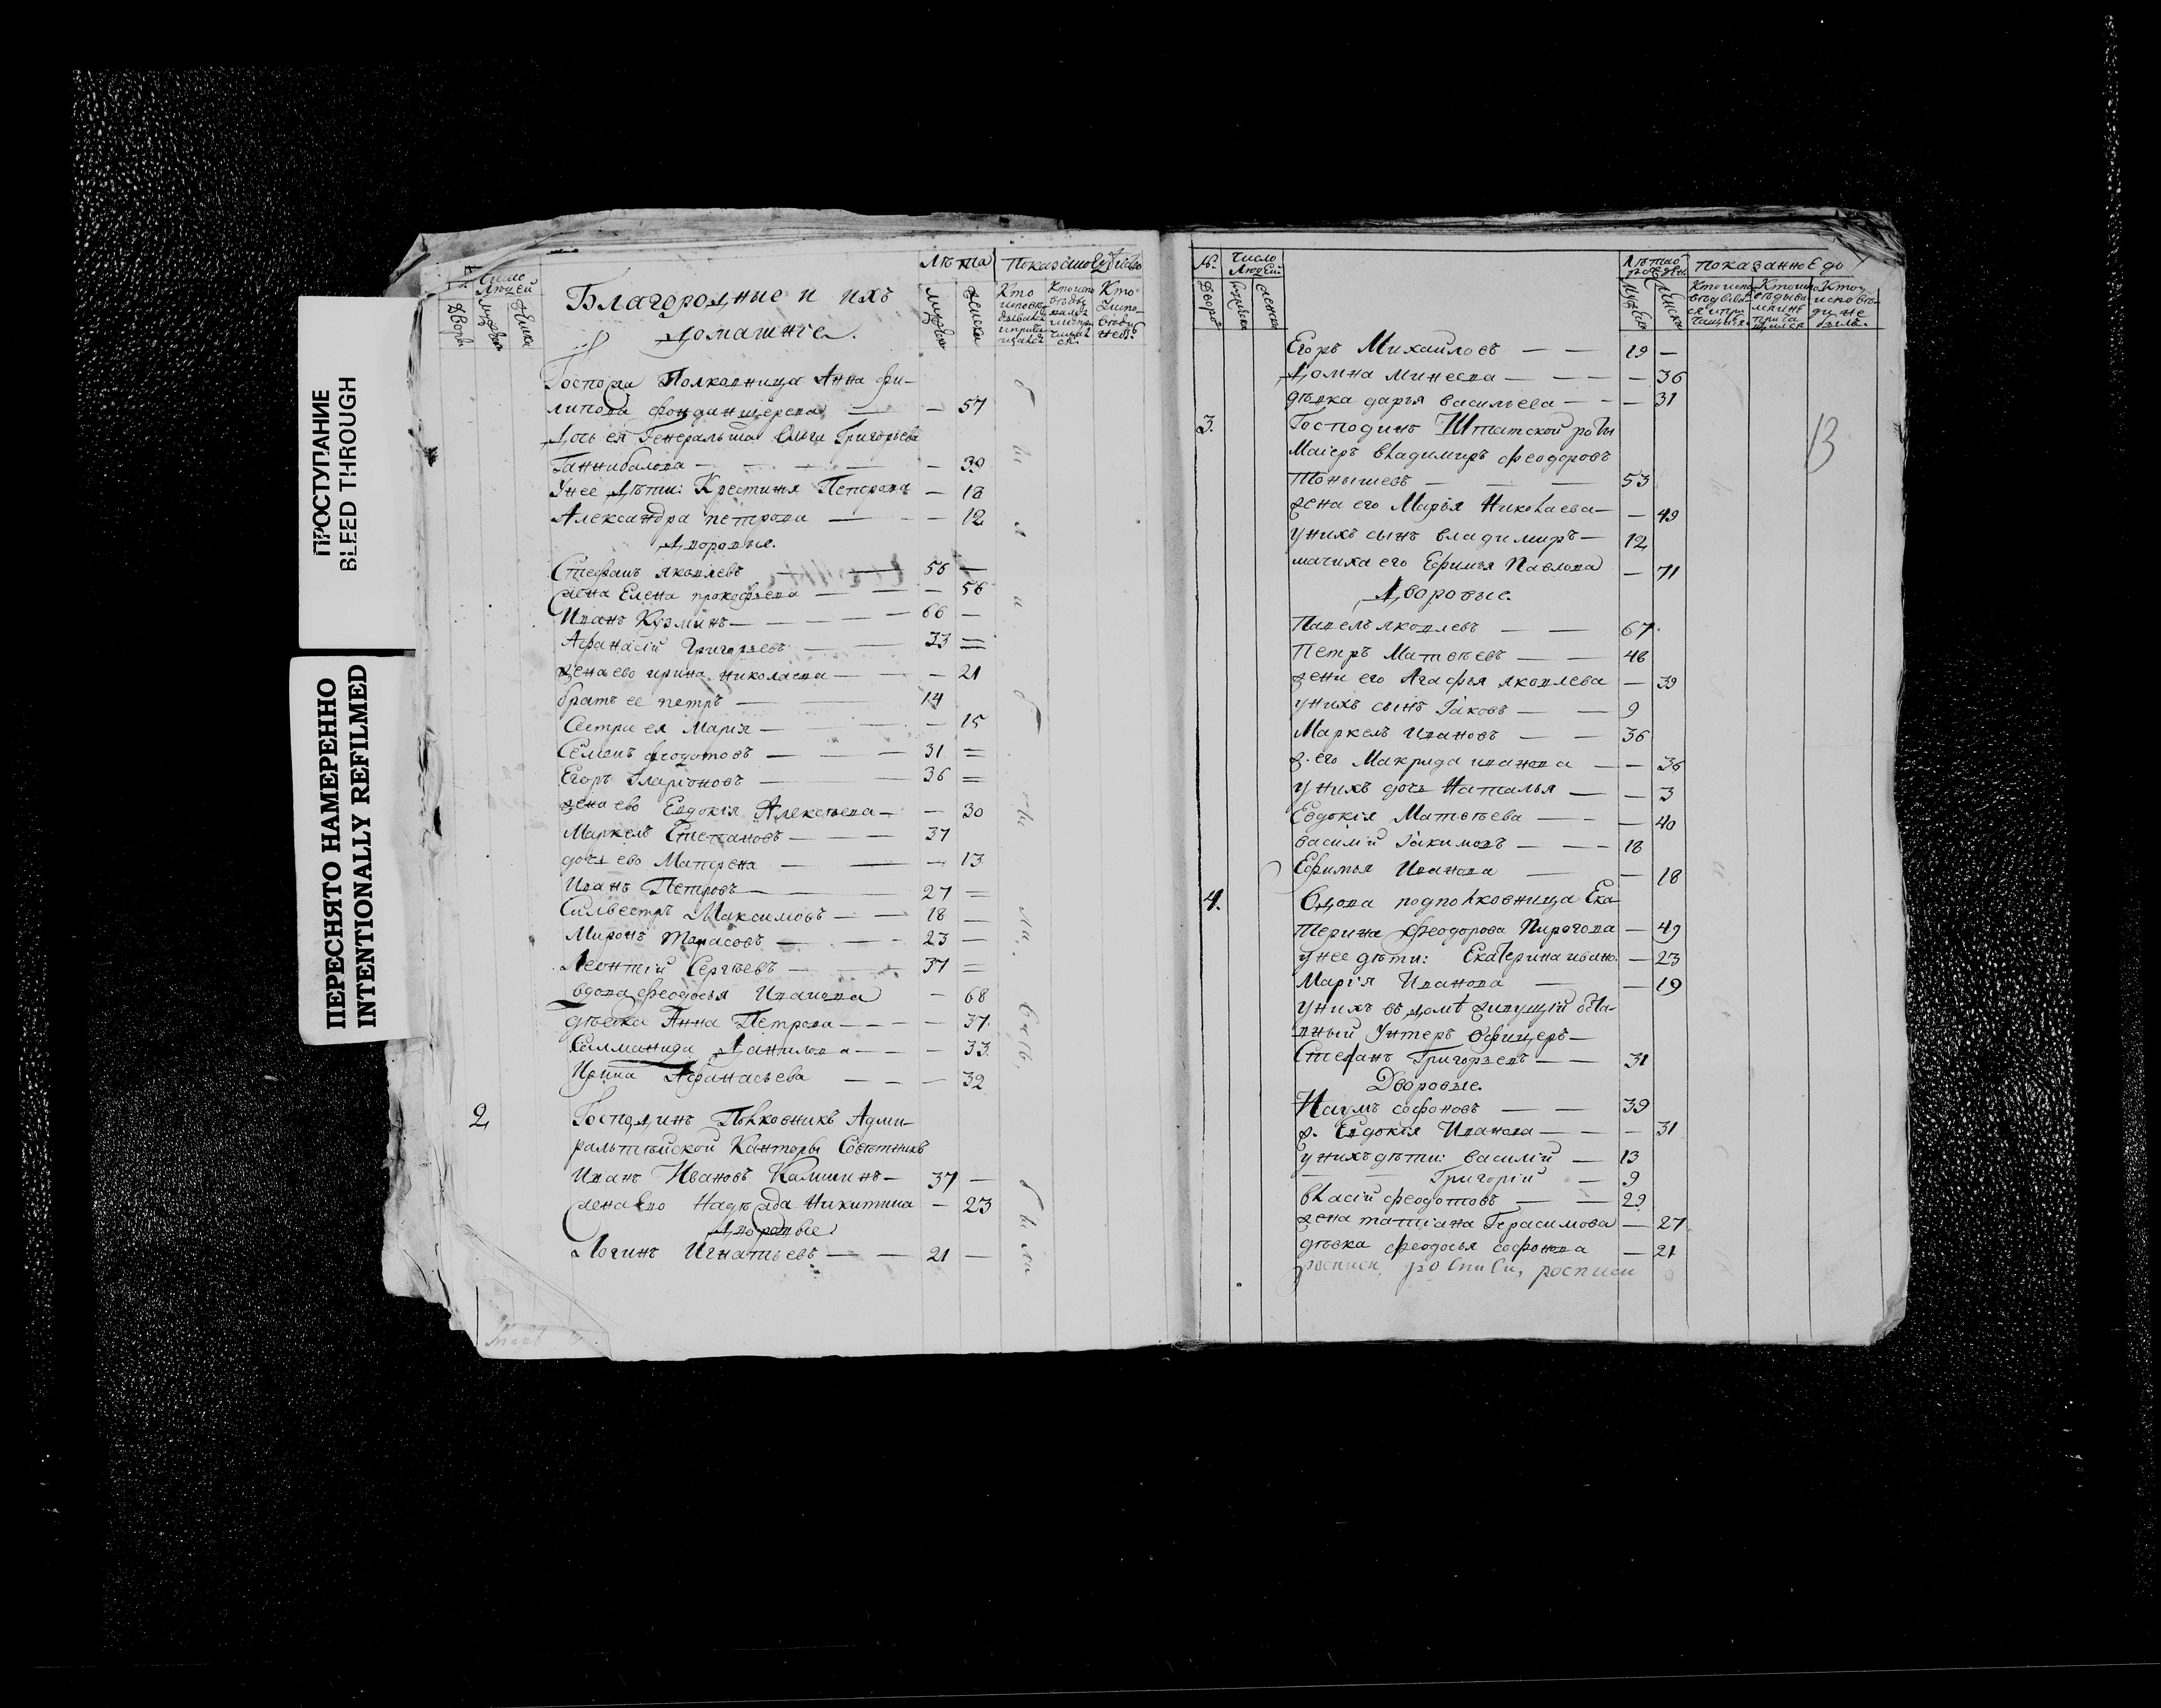 ПРОСТУПАНИЕ
BLEED THROUGH
ПЕРЕСНЯТО НАМЕРЕННО
INTENTIONALLY REFILMED
Число Людей
Лѣта
Благородные и ихъ
домашнѣе.
Госпожа Полковница Анна Фи-
липова — 57
Дочь ея Генеральша Олга Григорьева
Ганнибалова — 39
У нее дѣти: Крестинья Петрова — 18
Александра петрова — 12
Дворовые.
Стефанъ яковлевъ — 56 —
жена Елена прокофьева — 56
Иванъ Кузминъ — 66 —
Афанасій Григорьевъ — 33 =
жена ево ирина николаева — 21
братъ ее петръ — 14
Сестра ея Марія — 15
Семенъ федотовъ — 31 =
Егоръ Іларіоновъ — 36 =
жена ево Евдокія Алексѣева — 30
Маркелъ Степановъ — 37
дочь ево Матрена — 13
Иванъ Петровъ — 27 =
Силвестръ Максимовъ — 18 —
Миронъ Тарасовъ — 23 —
Леонтій Сергѣевъ — 37 =
вдова феодосья Иванова — 68
дѣвка Анна Петрова — 37
Данилова — 33
Ирина Афанасьева — 32
2 Господинъ Полковникъ Адми-
ралтѣйской Канторы Совѣтникъ
Иванъ Ивановъ — 37 —
жена ево Надѣжда Никитина — 23
Дворовые
Логинъ Игнатьевъ — 21 —
были
№ Число Людей
Дворовъ
показанное до
Егоръ Михайловъ — 19 —
Домна Минеева — 36
дѣвка дарья васильева — 31
3. Господинъ Штатской роты
Маіеръ владимиръ феодоровъ
53
жена его Марья Николаева — 49
у нихъ сынъ владимиръ — 12
мачиха его Ефимья Павлова — 71
Дворовые.
Павелъ яковлевъ — 67
Петръ Матвѣевъ — 46
жена его Агафья яковлева — 39
у нихъ сынъ Іаковъ — 9
Маркелъ Ивановъ — 36
ж. его Макрида иванова — 36
у нихъ дочь Наталья — 3
Евдокія Матвѣева — 40
василій Іакимовъ — 18
Ефимья Иванова — 18
4. Вдова подполковница Ека-
терина Феодорова Пирогова — 49
у нее дѣти: Екатерина ивано. — 23
Марія Иванова — 19
у нихъ въ домѣ живущій
Унтеръ Офицеръ —
Стефанъ Григорьевъ — 31
Дворовые.
Наумъ софоновъ — 39
ж. Евдокія Иванова — 31
у нихъ дѣти: василій — 13
Григорій — 9
власій феодотовъ — 29
жена татіана Герасимова — 27
дѣвка феодосья софонова — 21
росписи, росписи, росписи
13